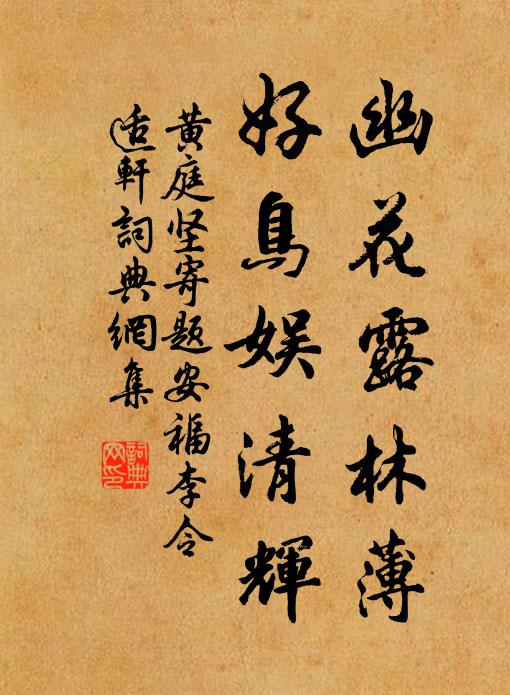 幽花露林薄
好鳥娛清輝
黄庭坚寄題安福李令
适軒詞典網集
詞典网印